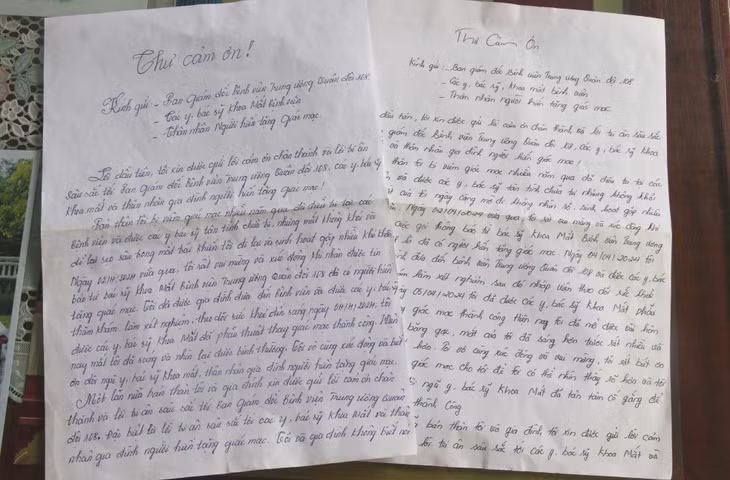 Thư cảm ơn!
Kính gửi: - Ban Giám đốc Bệnh viện Trung ương Quân đội 108.
- Các y, bác sỹ khoa Mắt Bệnh viện
- Thân nhân Người hiến tặng giác mạc.
Lời đầu tiên, tôi xin được gửi lời cảm ơn chân thành và lời tri ân
sâu sắc tới Ban Giám đốc Bệnh viện Trung ương Quân đội 108, các y, bác sỹ
khoa mắt và thân nhân gia đình người hiến tặng giác mạc!
Bản thân tôi bị viêm giác mạc nhiều năm qua, đã điều trị tại các
Bệnh viện và được các y bác sỹ tận tình chữa trị, nhưng mắt không khỏi và
để lại sẹo sâu trong mắt
đi lại và sinh hoạt gặp nhiều khó khăn.
Ngày 02/4/2024 vừa qua, tôi rất vui mừng và xúc động khi nhận được tin
báo từ bác sỹ khoa Mắt Bệnh viện Trung ương Quân đội 108 đã có người hiến
tặng giác mạc. Tôi đã được gia đình đưa đến Bệnh viện và được các y, bác sỹ
thăm khám, làm xét nghiệm, theo dõi sức khỏe sáng ngày 04/4/2024, tôi
được các y, bác sỹ khoa Mắt phẫu thuật thay giác mạc thành công.
nay mắt tôi đã sáng và nhìn lại được bình thường. Tôi vô cùng xúc động và biết
ơn đội ngũ y, bác sỹ khoa mắt, thân nhân gia đình người hiến tặng giác mạc.
Một lần nữa bản thân tôi và gia đình xin được gửi lời cảm ơn chân
thành và lời tri ân sâu sắc tới Ban Giám đốc Bệnh viện Trung ương Quân
đội 108, đặc biệt là lời tri ân sâu sắc tới các y, bác sỹ khoa Mắt và thân
nhân gia đình người hiến tặng giác mạc. Tôi và gia đình không biết nói
Thư Cảm Ơn
Kính gửi: - Ban giám đốc Bệnh viện Trung ương Quân đội 108
- Các y, bác sỹ, khoa mắt bệnh viện
- Thân nhân người hiến tặng giác mạc
đầu tiên, tôi xin được gửi lời cảm ơn chân thành và lời tri ân sâu sắc
giám đốc Bệnh viện Trung ương Quân đội 108, các y, bác sỹ khoa
và thân nhân gia đình người hiến giác mạc!
thân tôi bị viêm giác mạc nhiều năm qua đã điều trị tại các
và được các y, bác sỹ tận tình chữa trị nhưng không khỏi
của tôi ngày càng mờ đi không nhìn rõ, sinh hoạt gặp nhiều
Ngày 02/04/2024 vừa qua, tôi rất vui mừng và xúc động khi
gọi thông báo từ bác sỹ khoa Mắt Bệnh viện Trung ương
là đã có người hiến tặng giác mạc. Ngày 04/04/2024 tôi
đình đưa đến bệnh viện Trung ương Quân đội 108 và được các y, bác
làm xét nghiệm sau đó nhập viện theo dõi sức khoẻ
05/04/2024 tôi đã được các y, bác sỹ khoa Mắt phẫu
giác mạc thành công
băng gạc, mắt của tôi đã sáng hơn trước rất nhiều và
hơn. Tôi vô cùng xúc động và vui mừng, tôi rất biết ơn
giác mạc cho tôi để tôi có thể nhìn thấy rõ hơn và tôi
ngũ y, bác sỹ khoa Mắt đã tận tâm cố gắng để
thành công
bản thân tôi và gia đình, tôi xin được gửi lời cảm
lời tri ân sâu sắc tới các y, bác sỹ khoa Mắt và